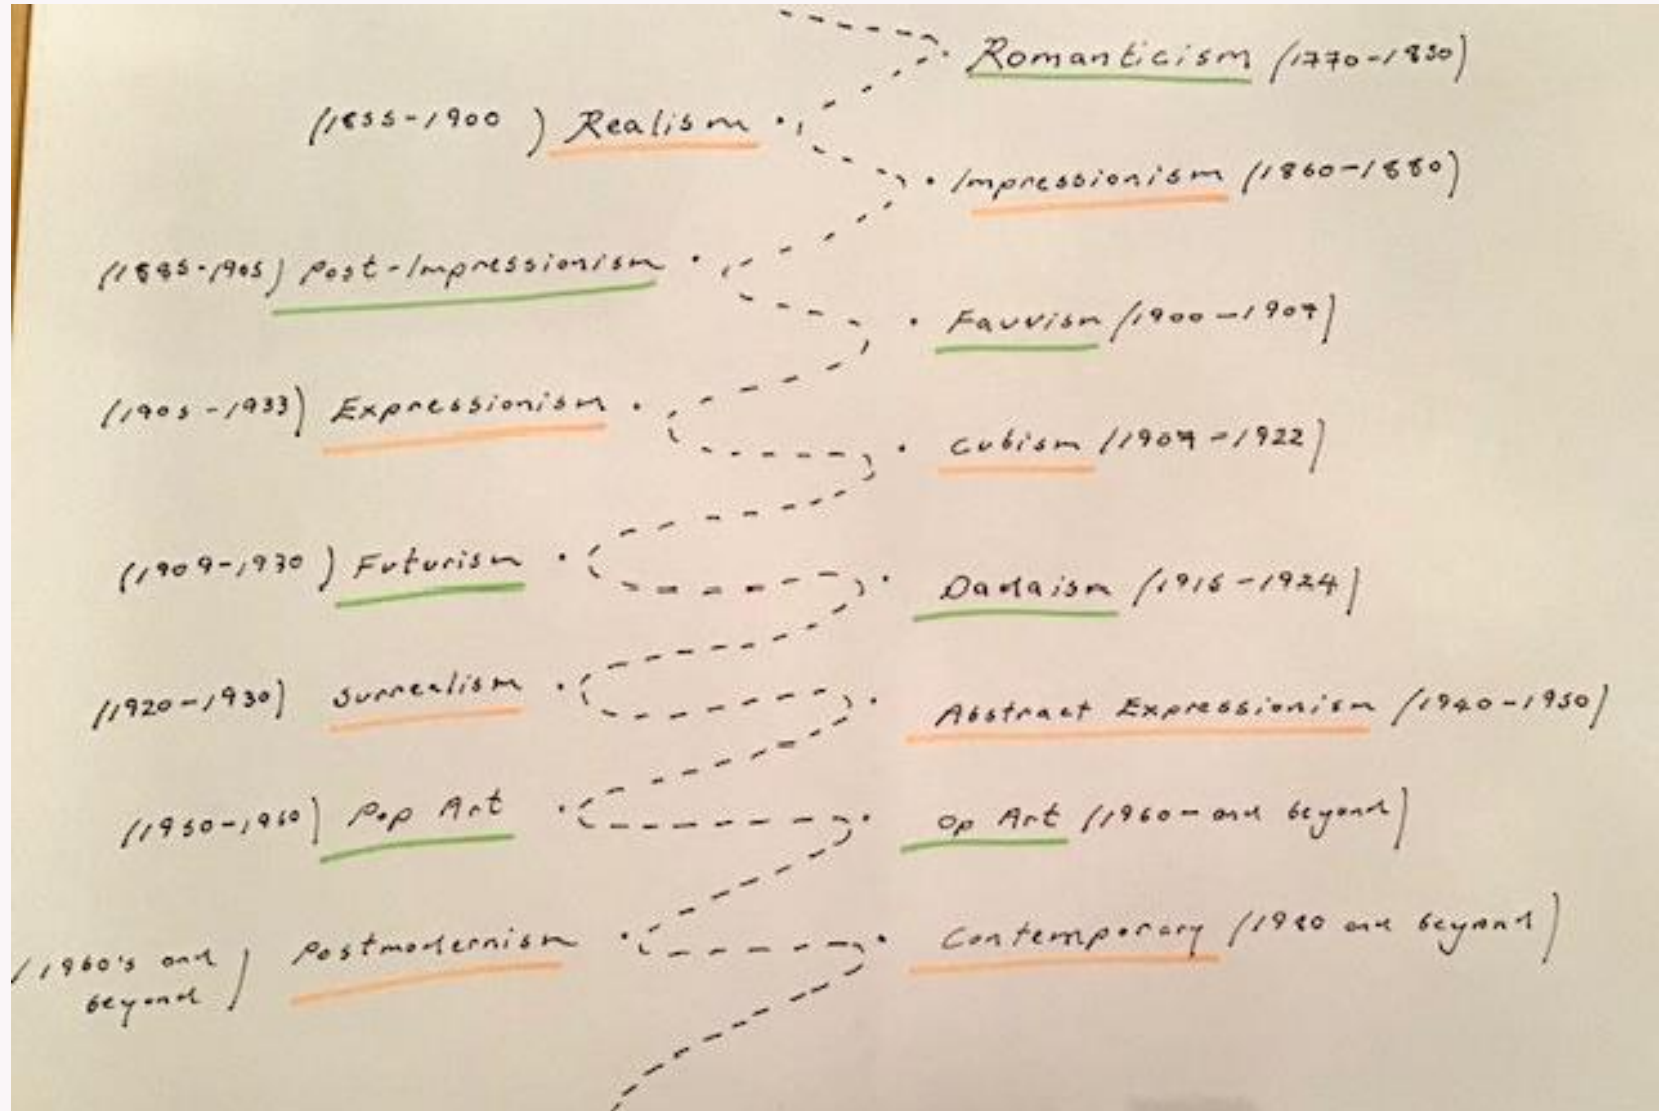 Romanticism (1770-1850)
(1855-1900) Realism
Impressionism (1860-1880)
(1885-1905) Post-Impressionism
Fauvism (1900-1907)
(1905-1933) Expressionism
Cubism (1907-1922)
(1909-1930) Futurism
Dadaism (1916-1924)
(1920-1930) Surrealism
Abstract Expressionism (1940-1950)
(1950-1960) Pop Art
Op Art (1960-and beyond)
Contemporary (1980 and beyond)
(1960's and Postmodernism
beyond)